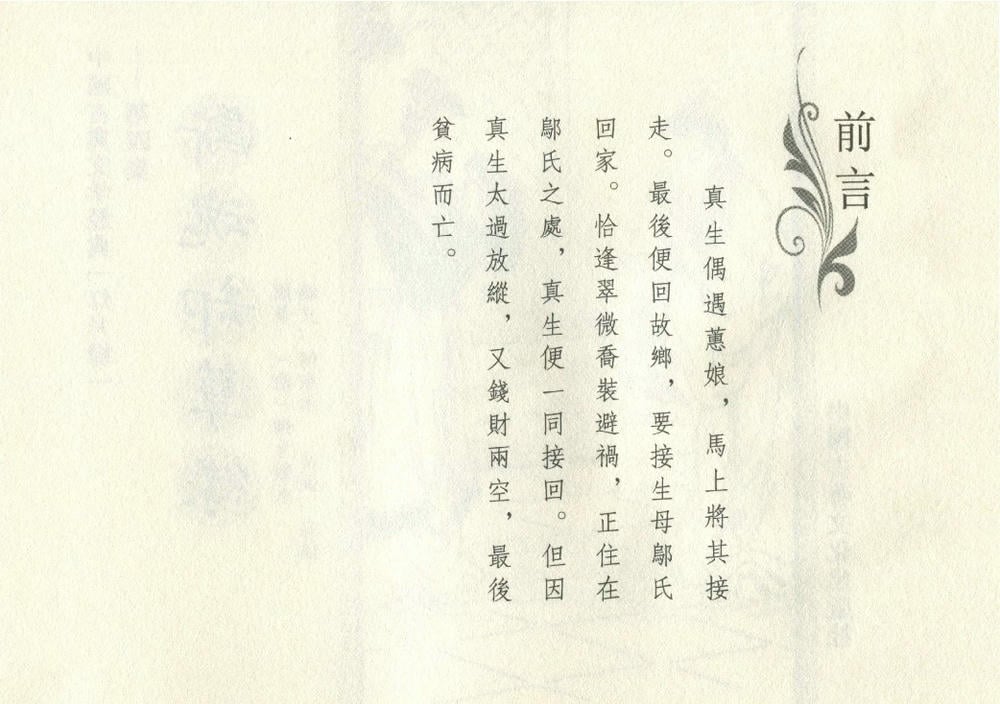 前言
真生偶遇蕙娘，馬上將其接
走。最後便回故鄉，要接生母鄔氏
回家。恰逢翠微喬裝避禍，正住在
鄔氏之處，真生便一同接回。但因
真生太過放縱，又錢財兩空，最後
貧病而亡。